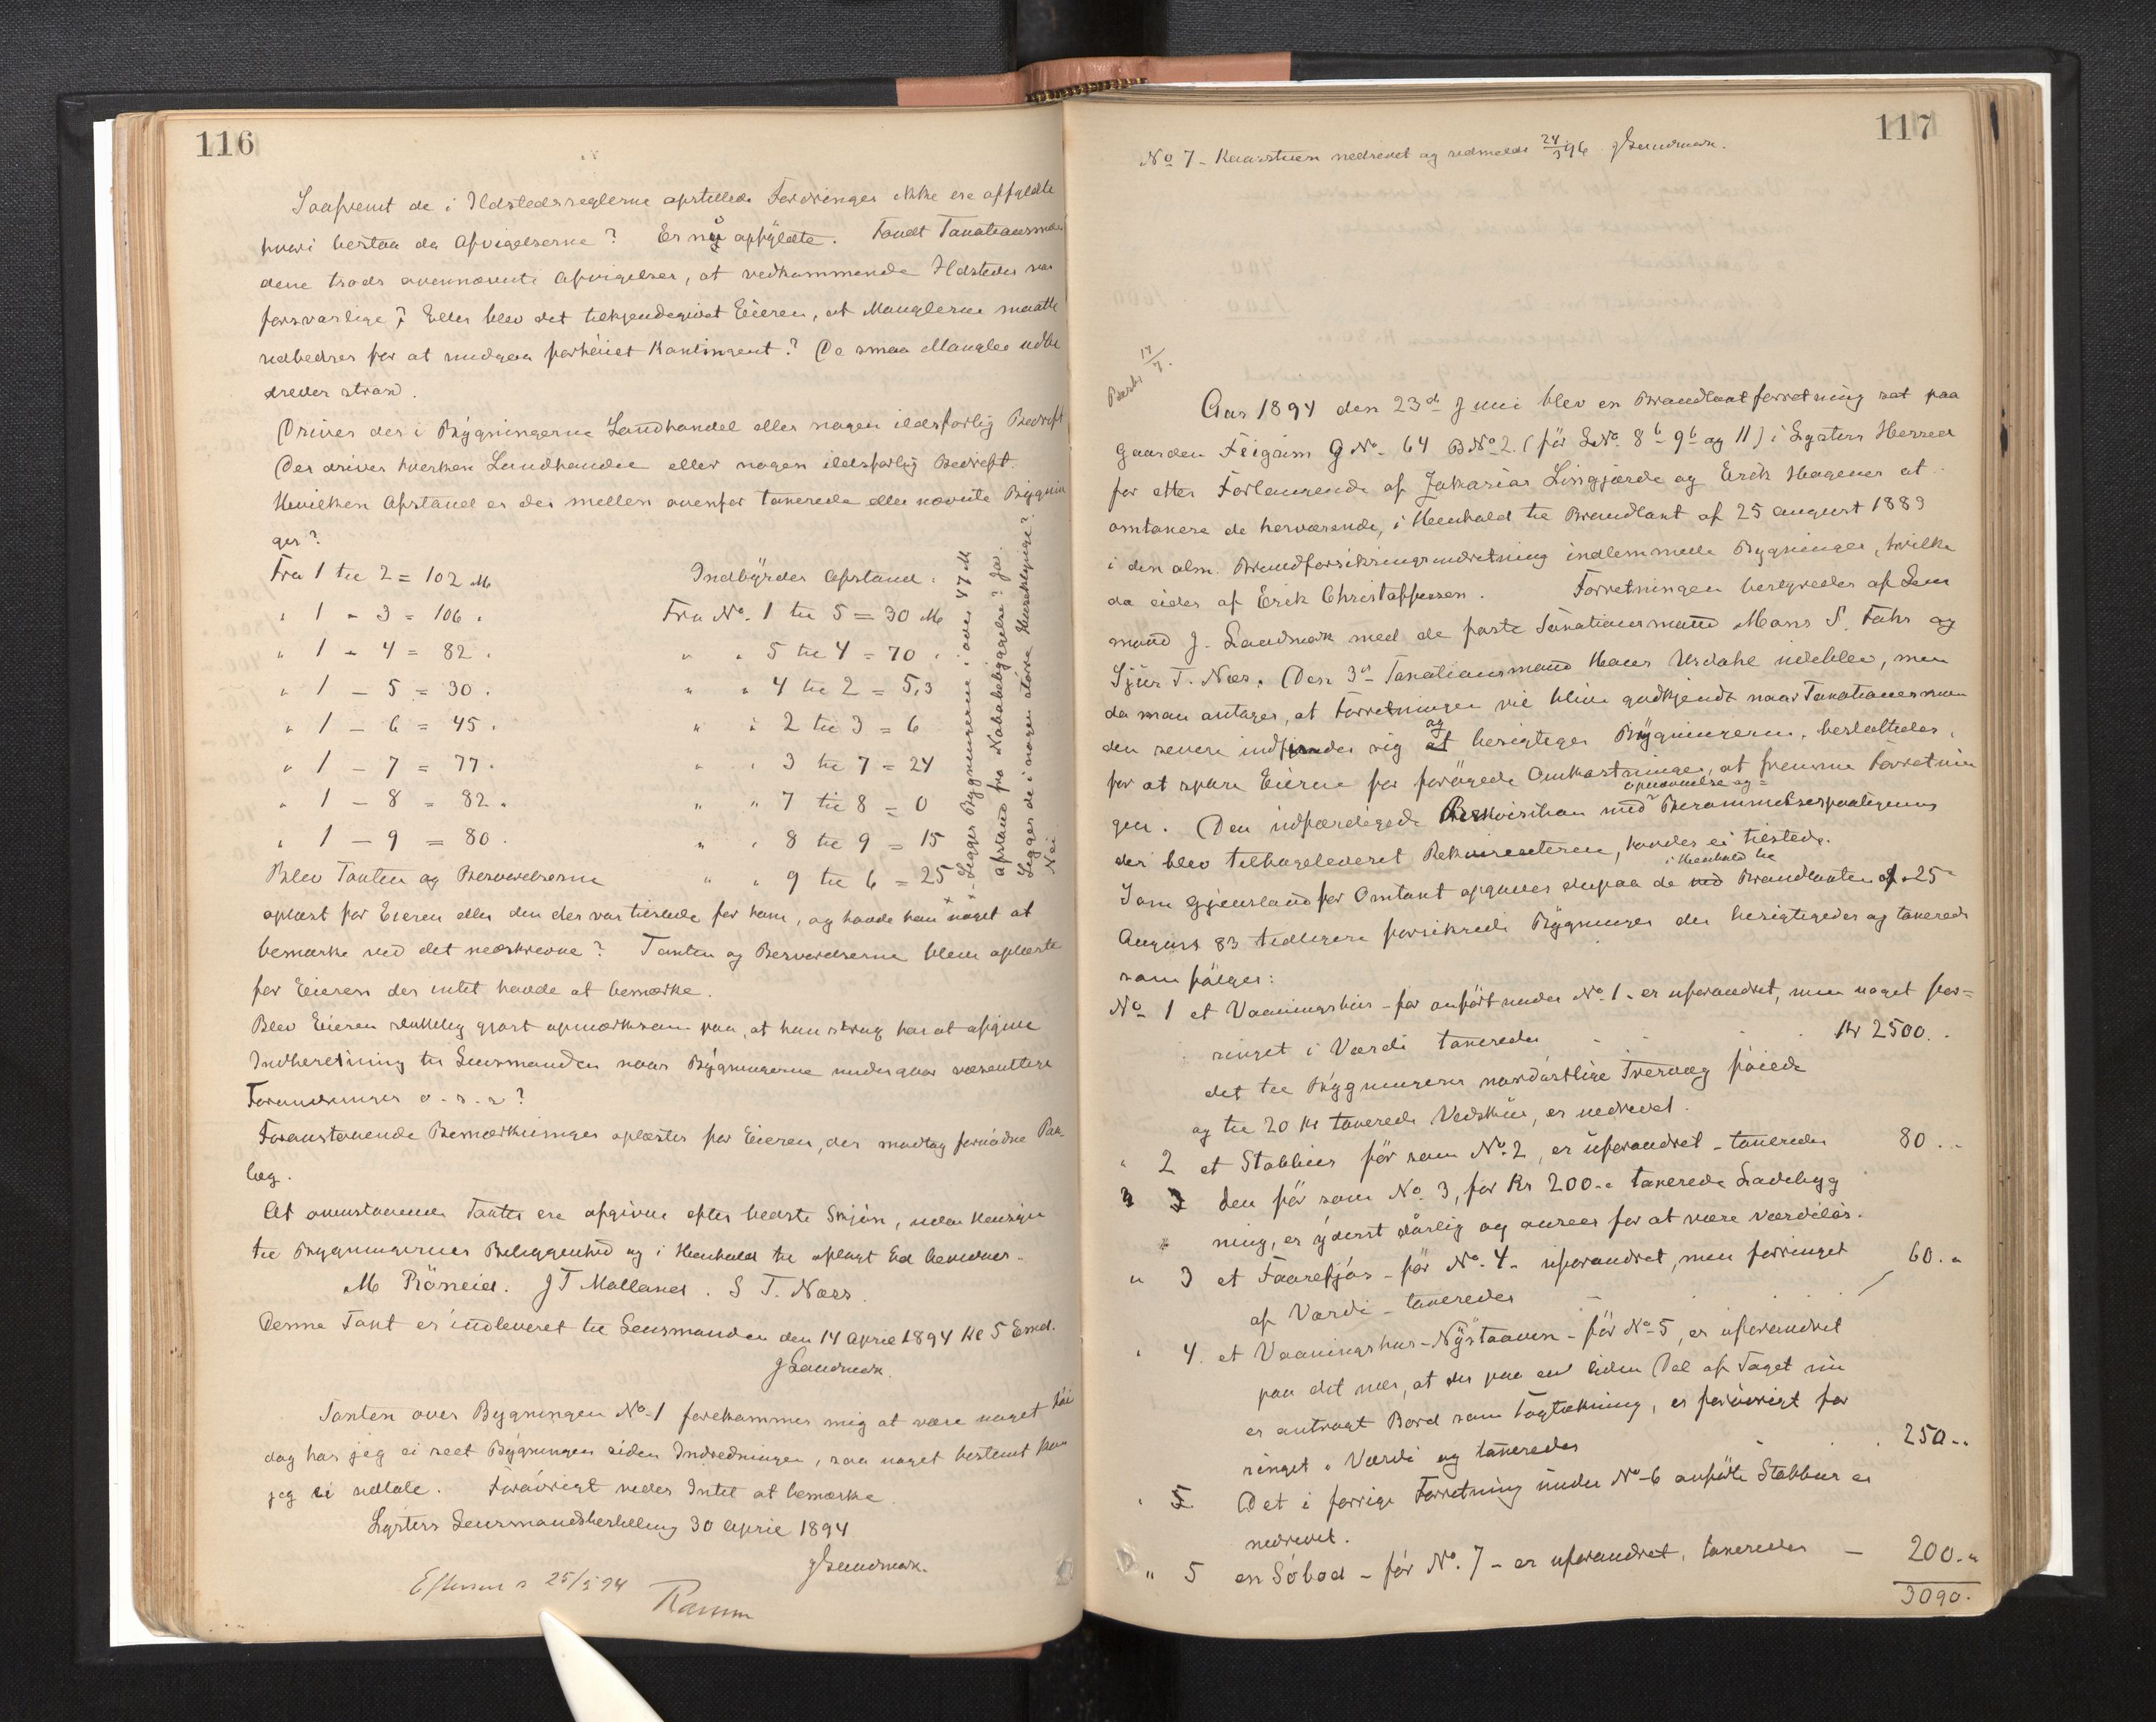 116
Saafremt de i Ildstedsreglerne opstillede Fordringer ikke ere opfyldte
hvori bestaa da Afvigelserne? Er nu opfyldte. Fandt Taxationsmæn
dene trods ovennævnte Afvigelser, at vedkommende Ildsteder var
forsvarlige? Eller blev det tilkjendegivet Eieren, at Manglerne maatte
udbedres for at undgaa forhöiet Kontingent? De smaa Mangler udbe
dredes strax.
Drives der i Bygningerne Landhandel eller nogen ildsfarlig Bedrift
Der drives hverken Landhandel eller nogen ildsfarlig Bedrift.
Hvilken Afstand er der mellem ovenfor taxerede eller nævnte Bygnin
ger?
Fra 1 til 2 = 102 M
" 1 - 3 = 106 "
" 1 - 4 = 82 "
" 1 - 5 = 30 "
" 1 - 6 = 45 "
" 1 - 7 = 77 "
" 1 - 8 = 82 "
" 1 - 9 = 80 "
Indbyrdes Afstand:
Fra No. 1 til 5 = 30 M
" " 5 til 4 = 70 "
" " 4 til 2 = 5,3
" " 2 til 3 = 6
" " 3 til 7 = 24
" " 7 til 8 = 0
" " 8 til 9 = 15
" " 9 til 6 = 25
× Ligger Bygningerne i over 47 M
afstand fra Nabobebyggelse? Ja.
Ligges de i nogen større Huseklynge?
Nei
Blev Taxten og Beskrivelserne
oplæst for Eieren eller den der var tilstede for ham, og havde han noget at
bemærke ved det nedskrevne? Taxten og Beskrivelserne blev oplæste
for Eieren der intet havde at bemærke.
Blev Eieren slutteleg gjort opmærksom paa, at han strax har at afgive
Indberetning til Lensmanden naar Bygningerne undergaar væsentlige
Forandringer o. s. v?
Foranstaaende Bemærkninger oplæstes for Eieren, der modtog fornödne Paa
læg.
At ovenstaaende Taxter ere afgivne efter bedste Skjön, uden Hensyn
til Bygningernes Beliggenhed og i Henhold til aflagt Ed bevidnes.
M Röneid. J T Molland. S T. Næss.
Denne Taxt er indleveret til Lensmanden den 14 April 1894 Kl 5 Emd.
J Landmark.
Taxten over Bygningen No 1 forekommer mig at være noget höi
dog har jeg ei seet Bygningen siden Indredningen, saa noget bestemt kan
jeg ei udtale. Forövrigt vides Intet at bemærke
Lysters Lensmandsbestilling 30 April 1894
J Landmark.
25/5 94 Ramm
117
No 7 - nedrevet og udmeldt 24/3 96. J Landmark.
17/7.
Aar 1894 den 23d Juni blev en Brandtaxtforretning sat paa
Gaarden Feigum G No. 64 B No 2 (för L No. 8b 9b og 11) i Lysters Herred
for efter Forlangende af Zakarias Lingjærde og Erik Hagenes at
omtaxere de herværende, i Henhold til Brandtaxt af 25 august 1883
i den alm. Brandforsikringsindretning indlemmede Bygninger, hvilke
da eides af Erik Christoffersen. Forretningen bestyredes af Lens
mand J. Landmark med de faste Taxationsmænd Mons S. Fahs og
Sjur T. Næs. Den 3die Taxationsmand Hans Urdahl udeblev, men
da man antager, at Forretningen vil blive godkjendt naar Taxationsman
den senere indfinder sig og besigtiger Bygningerne, besluttedes,
for at spare Eierne for forögede Omkostninger, at fremme Forretnin
gen. Den udfærdigede Rekvisition med opnævnelse og Berammelsespaategning
der blev tilbageleveret Rekvirenterne, havdes ei tilstede.
Som Gjenstand for Omtaxt opgives derpaa de i Henhold til Brandtaxten af 25
August 83 tidligere forsikrede Bygninger der besigtigedes og taxeredes
som fölger:
No 1 et Vaaningshus - för anfört under No 1 - er uforandret, men noget for=
ringet i Værdi taxeredes - - Kr 2500. -
det til Bygningens nordöstlige Tvervæg föiede
og til 20 Kr taxerede Vedskur, er nedrevet.
" 2 et Stabbur för som No 2, er uforandret - taxeredes 80. -
den för som No 3, for Kr 200.- taxerede Ladebyg
ning, er yderst daarlig og ansees for at være værdilös.
" 3 et Faarefjös - för No. 4 - uforandret, men forringet
af Værdi - taxeredes 60. -
" 4. et Vaaningshus - Nystaaven - för No 5, er uforandret
paa det nær, at der paa en liden Del af Taget nu
er antragt Bord som Tagtækning, er forövrigt for
ringet i Værdi og taxeredes 250. -
Det i forrige Forretning under No 6 anförte Stabbur er
nedrevet.
" 5 en Söbod - för No. 7 - er uforandret, taxeredes - 200. -
3090.